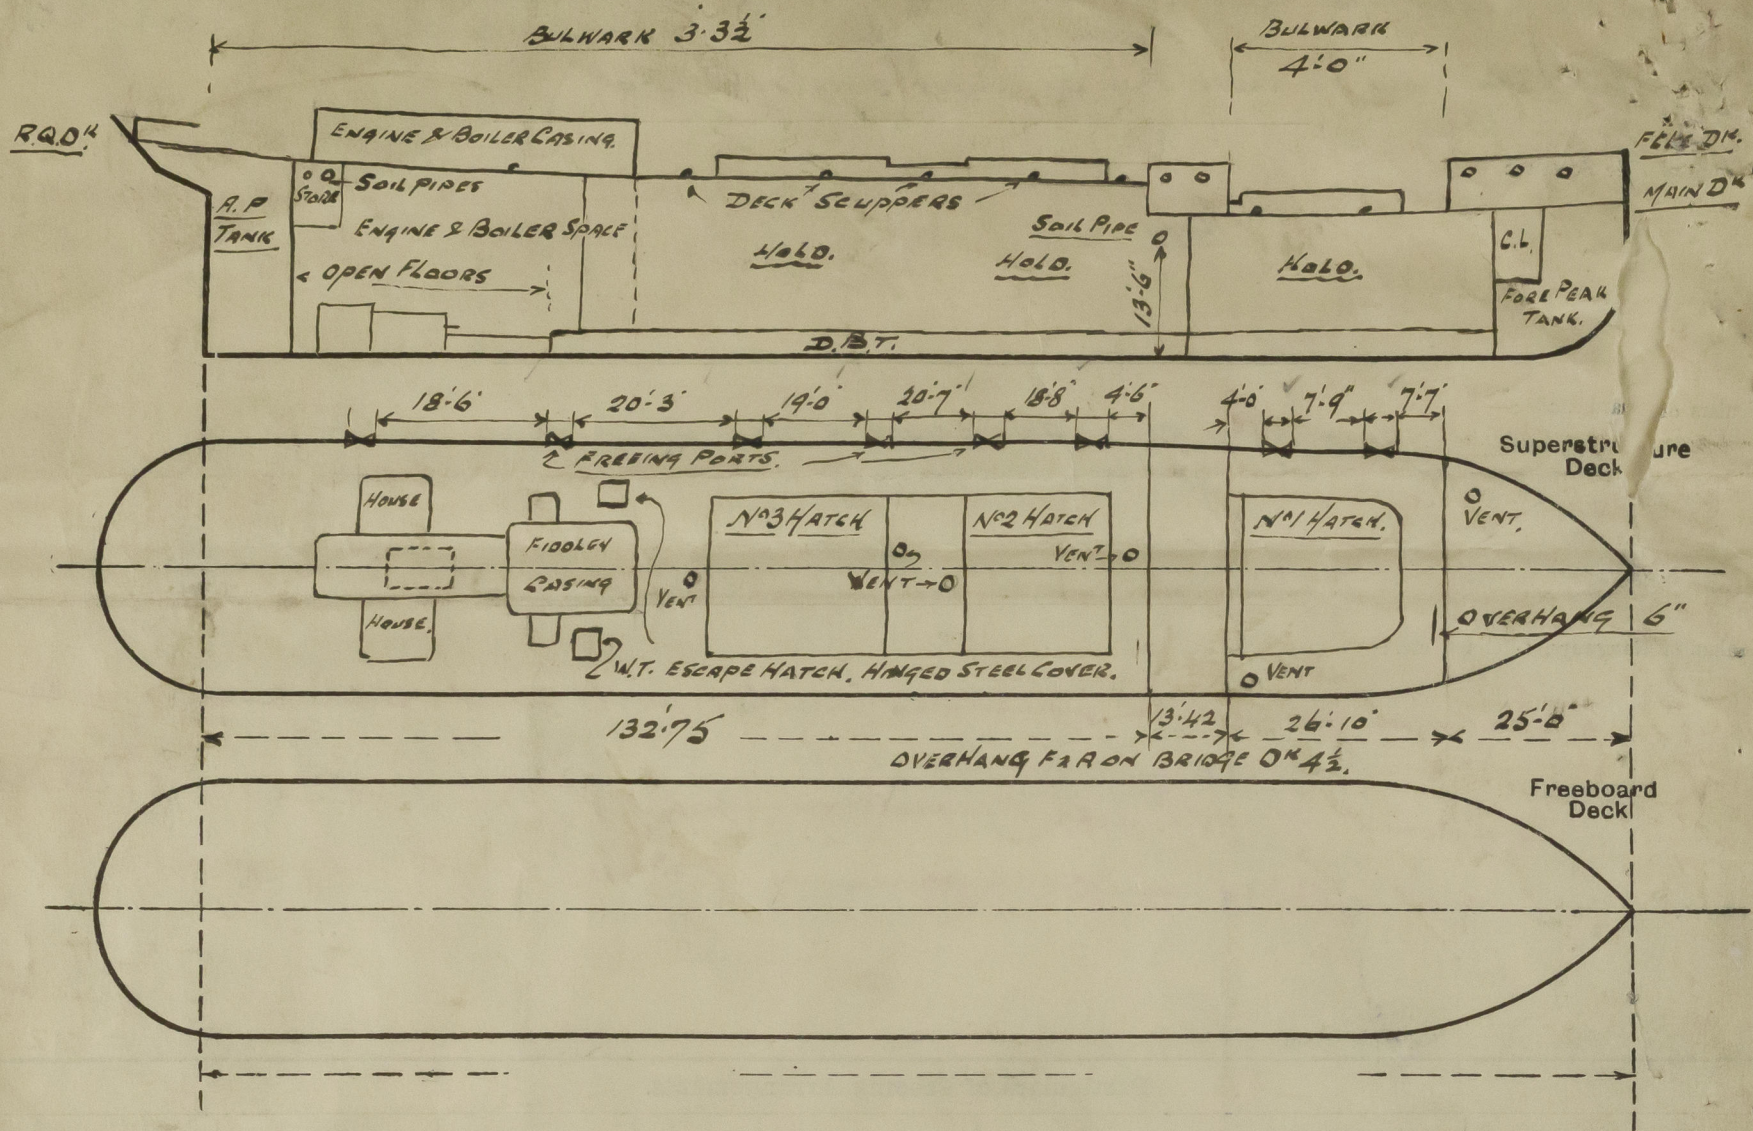 BULWARK 3'·3½"
BULWARK
4'·0"
R.Q.Dᴷ.
ENGINE & BOILER CASING.
DK.
MAIN Dᴷ
STORE
SOIL PIPES
A.P
TANK
DECK SCUPPERS
ENGINE & BOILER SPACE
SOIL PIPE
HOLD.
HOLD.
HOLD.
C.L.
OPEN FLOORS
13'·6"
FORE PEAK
TANK.
D.B.T.
18'·6"
20'·3"
19'·0"
20'·7"
18'·8"
4'·6"
4'·0"
7'·9"
7'·7"
FREEING PORTS.
Superstru ure
Deck
HOUSE
Nº3 HATCH
Nº2 HATCH
Nº1 HATCH.
VENT.
FIDDLEY
CASING
VENT
VENT
VENT
HOUSE.
OVERHANG 6"
W.T. ESCAPE HATCH. HINGED STEEL COVER.
VENT
132'·75
13'·42
26'·10"
25'·0"
OVERHANG F & A ON BRIDGE Dᴷ 4½.
Freeboard
Deck